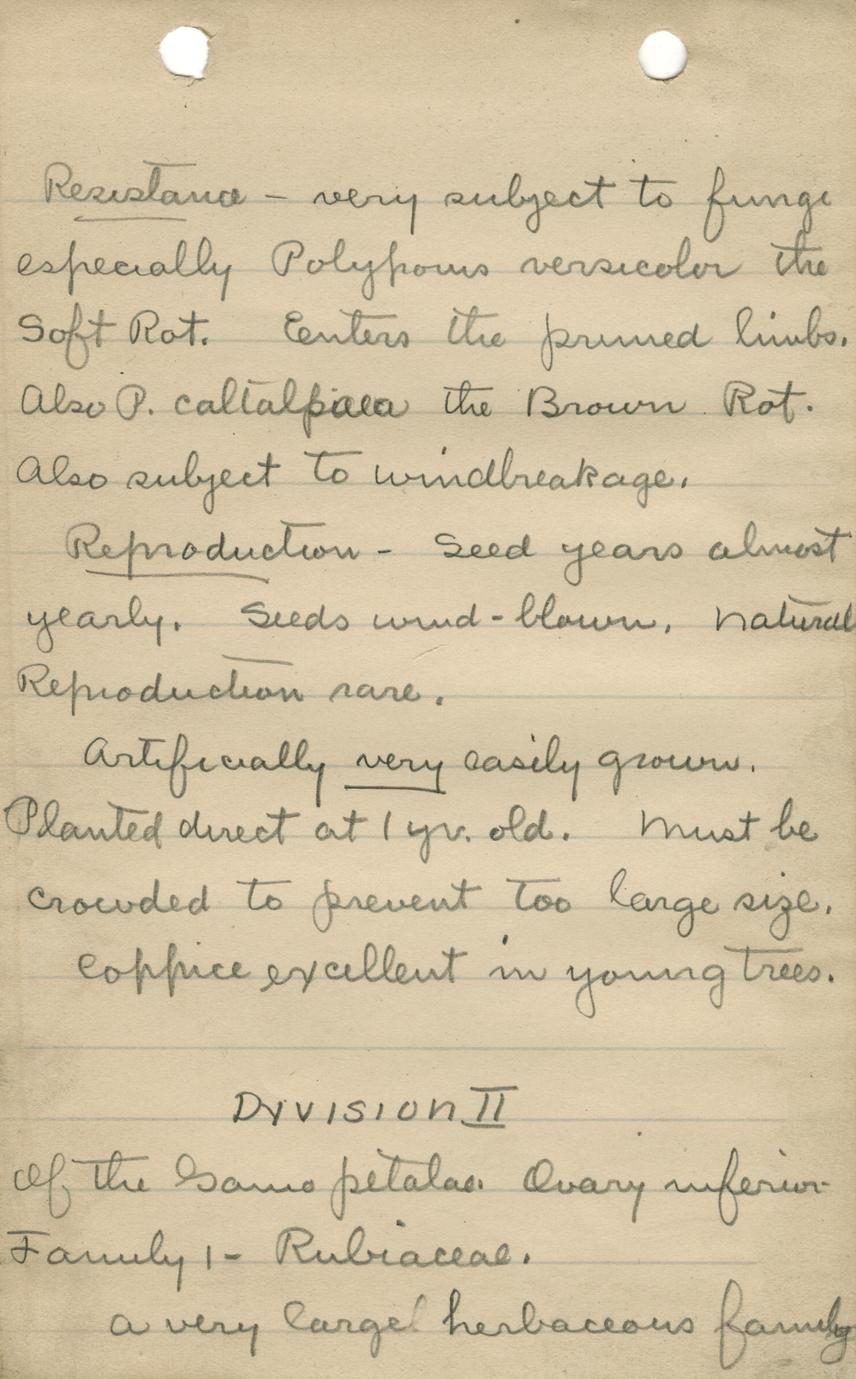 Resistance - very subject to fungi
especially Polyporus versicolor the
Soft Rot. Eenters the pruned limbs.
Also P. caltalpaea the Brown Rot.
Also subject to windbreakage.
Reproduction - Seed years almost
yearly. Seeds wind-blown. Natural
Reproduction rare.
Artificially very easily grown.
Planted direct at 1 yr. old. Must be
crowded to prevent too large size.
Coppice excellent in young trees.
DIVISION II
Of the Gamo petalae. Ovary inferior
Family 1 - Rubiaceae.
A very large herbaceous family